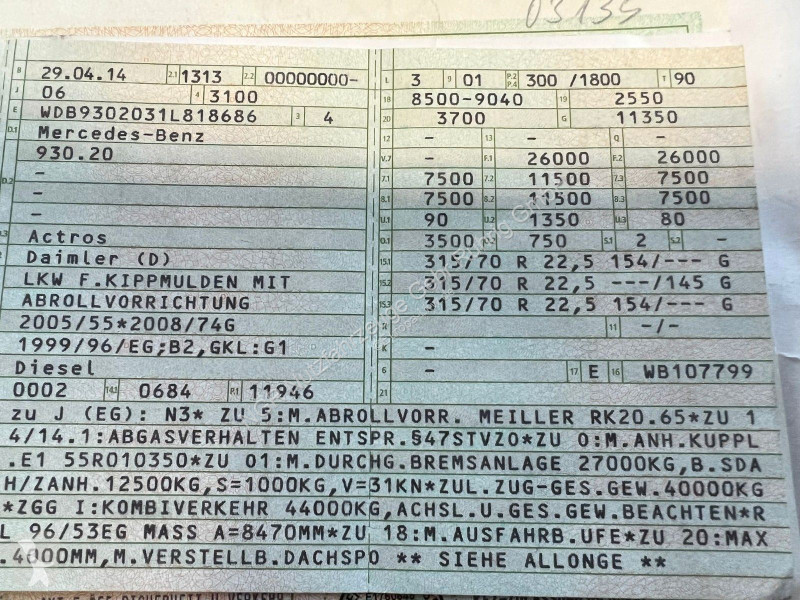 03135
B 29.04.14 2.1 1313 2.2 00000000-
J 06 4 3100
E WDB9302031L818686 3 4
D.1 Mercedes-Benz
930.20
-
D.2 -
-
D.3 Actros
2 Daimler (D)
LKW F.KIPPMULDEN MIT
ABROLLVORRICHTUNG
2005/55*2008/74G
1999/96/EG;B2,GKL:G1
Diesel
0002 14.1 0684 P.1 11946
L 3 9 01 P.2 P.4 300 /1800 T 90
18 8500-9040 19 2550
20 3700 G 11350
12 - 13 - Q -
V.7 - F.1 26000 F.2 26000
7.1 7500 7.2 11500 7.3 7500
8.1 7500 8.2 11500 8.3 7500
U.1 90 U.2 1350 U.3 80
O.1 3500 750 S.1 2 S.2 -
15.1 315/70 R 22,5 154/--- G
15.2 315/70 R 22,5 ---/145 G
15.3 315/70 R 22,5 154/--- G
R 11 -/-
K -
6 - 17 E 16 WB107799
21
zu J (EG): N3* ZU 5:M.ABROLLVORR. MEILLER RK20.65*ZU 1
4/14.1:ABGASVERHALTEN ENTSPR.§47STVZO*ZU O:M.ANH.KUPPL
.E1 55R010350*ZU O1:M.DURCHG.BREMSANLAGE 27000KG,B.SDA
H/ZANH.12500KG,S=1000KG,V=31KN*ZUL.ZUG-GES.GEW.40000KG
*ZGG I:KOMBIVERKEHR 44000KG,ACHSL.U.GES.GEW.BEACHTEN*R
L 96/53EG MASS A=8470MM*ZU 18:M.AUSFAHRB.UFE*ZU 20:MAX
.4000MM,M.VERSTELLB.DACHSPO ** SIEHE ALLONGE **